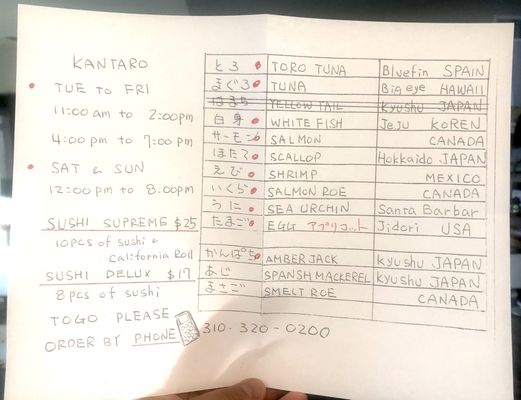 KANTARO
• TUE to FRI
11:00 am to 2:00pm
4:00 pm to 7:00 pm
• SAT & SUN
12:00 pm to 8:00pm
SUSHI SUPREME $25
10PCS of sushi &
California Roll
SUSHI DELUX $17
8 pcs of sushi
TOGO PLEASE
ORDER BY PHONE 310-320-0200
とろ TORO TUNA Bluefin SPAIN
まぐろ TUNA Big eye HAWAII
はまち YELLOW TAIL Kyushu JAPAN
白身 WHITE FISH Jeju KOREN
サーモン SALMON CANADA
ほたて SCALLOP Hokkaido JAPAN
えび SHRIMP MEXICO
いくら SALMON ROE CANADA
うに SEA URCHIN Santa Barbar
たまご EGG アプリコット Jidori USA
かんぱち AMBER JACK Kyushu JAPAN
あじ SPANSH MACKEREL Kyushu JAPAN
まさご SMELT ROE CANADA